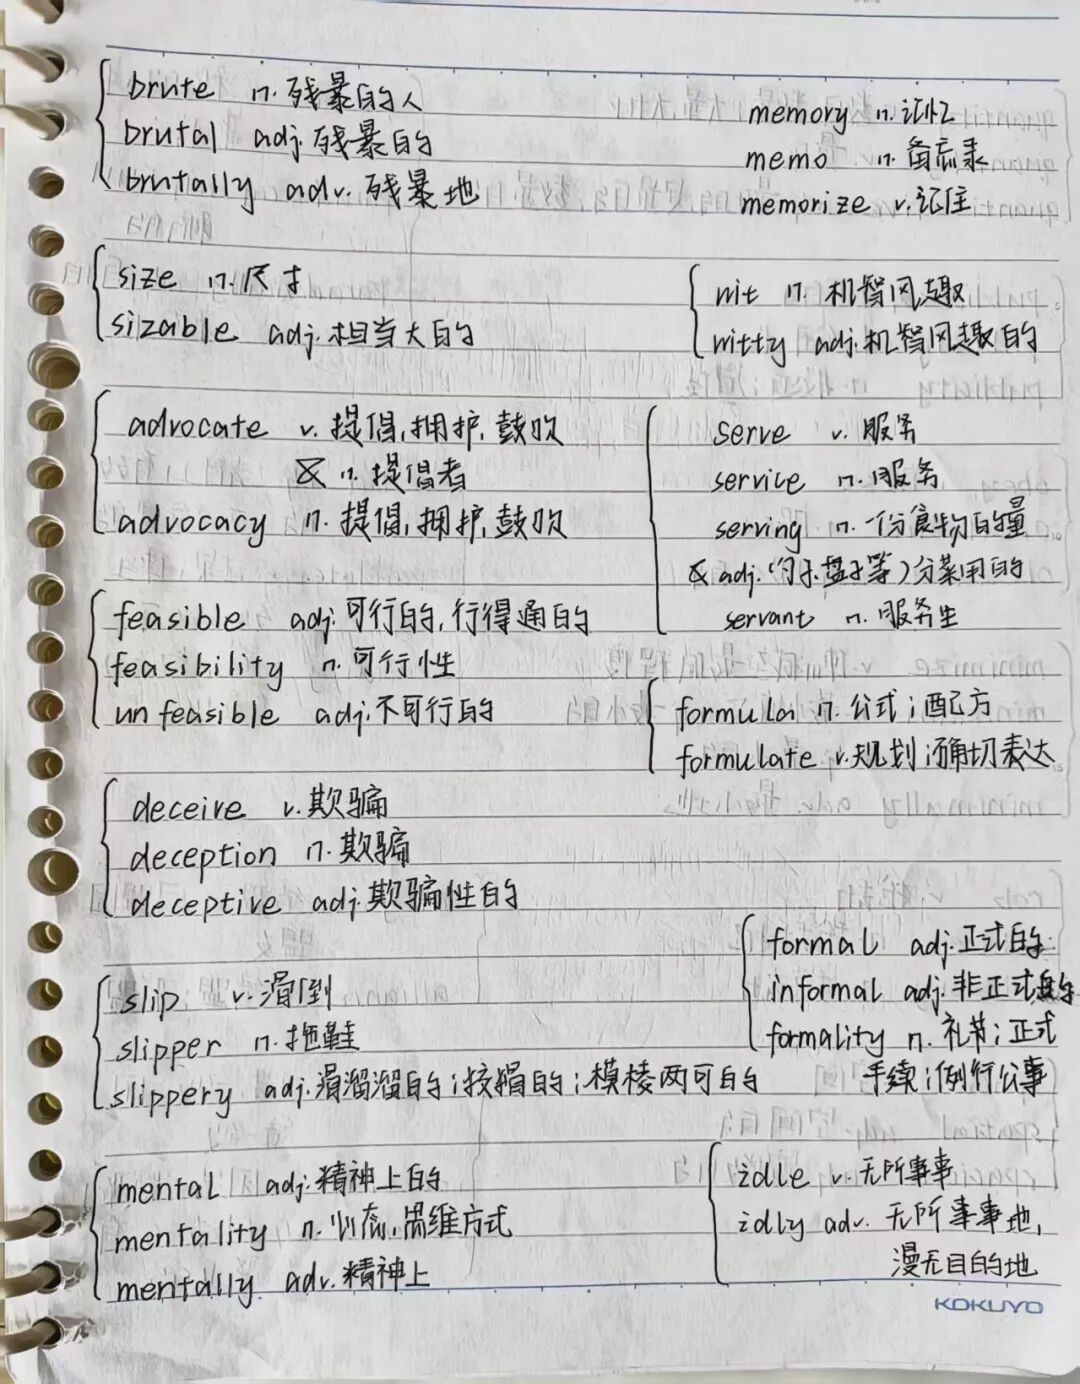 brute n. 残暴的人
brutal adj. 残暴的
brutally adv. 残暴地
memory n. 记忆
memo n. 备忘录
memorize v. 记住
size n. 尺寸
sizable adj. 相当大的
wit n. 机智风趣
witty adj. 机智风趣的
advocate v. 提倡,拥护,鼓吹
& n. 提倡者
advocacy n. 提倡,拥护,鼓吹
serve v. 服务
service n. 服务
serving n. 一份食物的量
& adj. (勺子.盘子等)分菜用的
servant n. 服务生
feasible adj. 可行的,行得通的
feasibility n. 可行性
unfeasible adj. 不可行的
formula n. 公式;配方
formulate v. 规划;确切表达
deceive v. 欺骗
deception n. 欺骗
deceptive adj. 欺骗性的
formal adj. 正式的
informal adj. 非正式的
formality n. 礼节;正式
手续;例行公事
slip v. 滑倒
slipper n. 拖鞋
slippery adj. 滑溜溜的;狡猾的;模棱两可的
mental adj. 精神上的
mentality n. 心态,思维方式
mentally adv. 精神上
idle v. 无所事事
idly adv. 无所事事地,
漫无目的地
KOKUYO